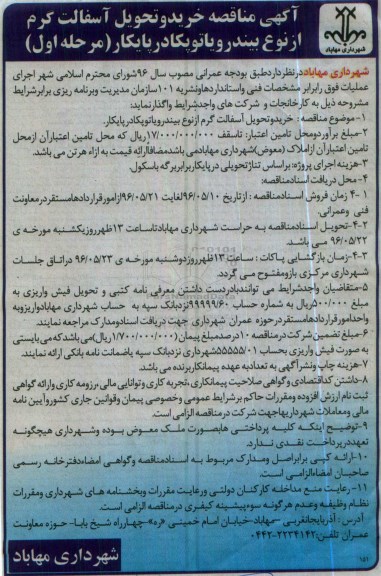 آگهی مناقصه خرید و تحویل آسفالت گرم
از نوع بیندر و یا توپکا در پایکار (مرحله اول)
شهرداری مهاباد
شهرداری مهاباد در نظر دارد طبق بودجه عمرانی مصوب سال ۹۶ شورای محترم اسلامی شهر اجرای
عملیات فوق را برابر مشخصات فنی و استانداردها و نشریه ۱۰۱ سازمان مدیریت و برنامه ریزی برابر شرایط
مشروحه ذیل به کارخانجات و شرکت های واجد شرایط واگذار نماید:
۱-موضوع مناقصه : خرید و تحویل آسفالت گرم از نوع بیندر و یا توپکا در پایکار.
۲-مبلغ برآورد و محل تامین اعتبار: تا سقف ۱۷/۰۰۰/۰۰۰/۰۰۰ ریال که محل تامین اعتبار آن از محل
تامین اعتبار آن از املاک (معوض) شهرداری مهاباد می باشد مضافا ارائه قیمت به ازاء هر تن می باشد.
۳-هزینه اجرای پروژه: براساس تناژ تحویلی در پایکار برابر برگه باسکول.
۴-محل دریافت اسناد مناقصه:
۴-۱ زمان فروش اسناد مناقصه : از تاریخ ۹۶/۰۵/۱۰ لغایت ۹۶/۰۵/۲۱ از امور قراردادها مستقر در معاونت
فنی و عمرانی.
۴-۲-تحویل اسناد مناقصه به حراست شهرداری مهاباد تا ساعت ۱۳ ظهر روز یکشنبه مورخه ی
۹۶/۰۵/۲۲ می باشد.
۴-۳-زمان بازگشایی پاکات : ساعت ۱۳ ظهر روز دوشنبه مورخه ی ۹۶/۰۵/۲۳ در اتاق جلسات
شهرداری مرکزی باز و مفتوح می گردد.
۵-متقاضیان واجد شرایط می توانند با در دست داشتن معرفی نامه کتبی و تحویل فیش واریزی به
مبلغ ۵۰۰/۰۰۰ ریال به شماره حساب نزد بانک سپه به حساب شهرداری مهاباد واریز و به
واحد امور قراردادها مستقر در حوزه عمران شهرداری جهت دریافت اسناد و مدارک مراجعه نمایند.
۶-مبلغ تضمین شرکت در مناقصه ۱۰ درصد مبلغ پیمان (۱/۷۰۰/۰۰۰/۰۰۰ ریال) می باشد که می بایستی
به صورت فیش واریزی بحساب شهرداری نزد بانک سپه یا ضمانت نامه بانکی ارائه نمایند.
۷-هزینه چاپ و نشر آگهی به تعداد به عهده پیمانکار برنده می باشد.
۸-داشتن کد اقتصادی و گواهی صلاحیت پیمانکاری، تجربه کاری و توانایی مالی و رزومه کاری و ارائه گواهی
ثبت نام ارزش افزوده و مقررات حاکم بر شرایط عمومی و خصوصی پیمان و قوانین جاری کشور و آیین نامه
مالی و معاملات شهرداریها جهت شرکت در مناقصه الزامی است.
۹-توضیح اینکه کلیه پرداختی ها بصورت ملک معوض بوده و شهرداری هیچگونه
تعهد در پرداخت نقدی ندارد.
۱۰-ارائه کپی برابر اصل و مدارک مربوط به اسناد مناقصه و گواهی امضاء دفترخانه رسمی
صاحبان امضاء الزامی است.
۱۱-رعایت منع مداخله کارکنان دولتی و رعایت مقررات و بخشنامه های شهرداری و مقررات
نظام وظیفه و عدم هرگونه سوء پیشینه کیفری در مناقصه الزامی است.
آدرس : آذربایجانغربی -مهاباد-خیابان امام خمینی «ره»-چهارراه شیخ بابا- حوزه معاونت
عمران تلفن: ۲۲۳۴۱۴۲-۰۴۴۲
شهرداری مهاباد